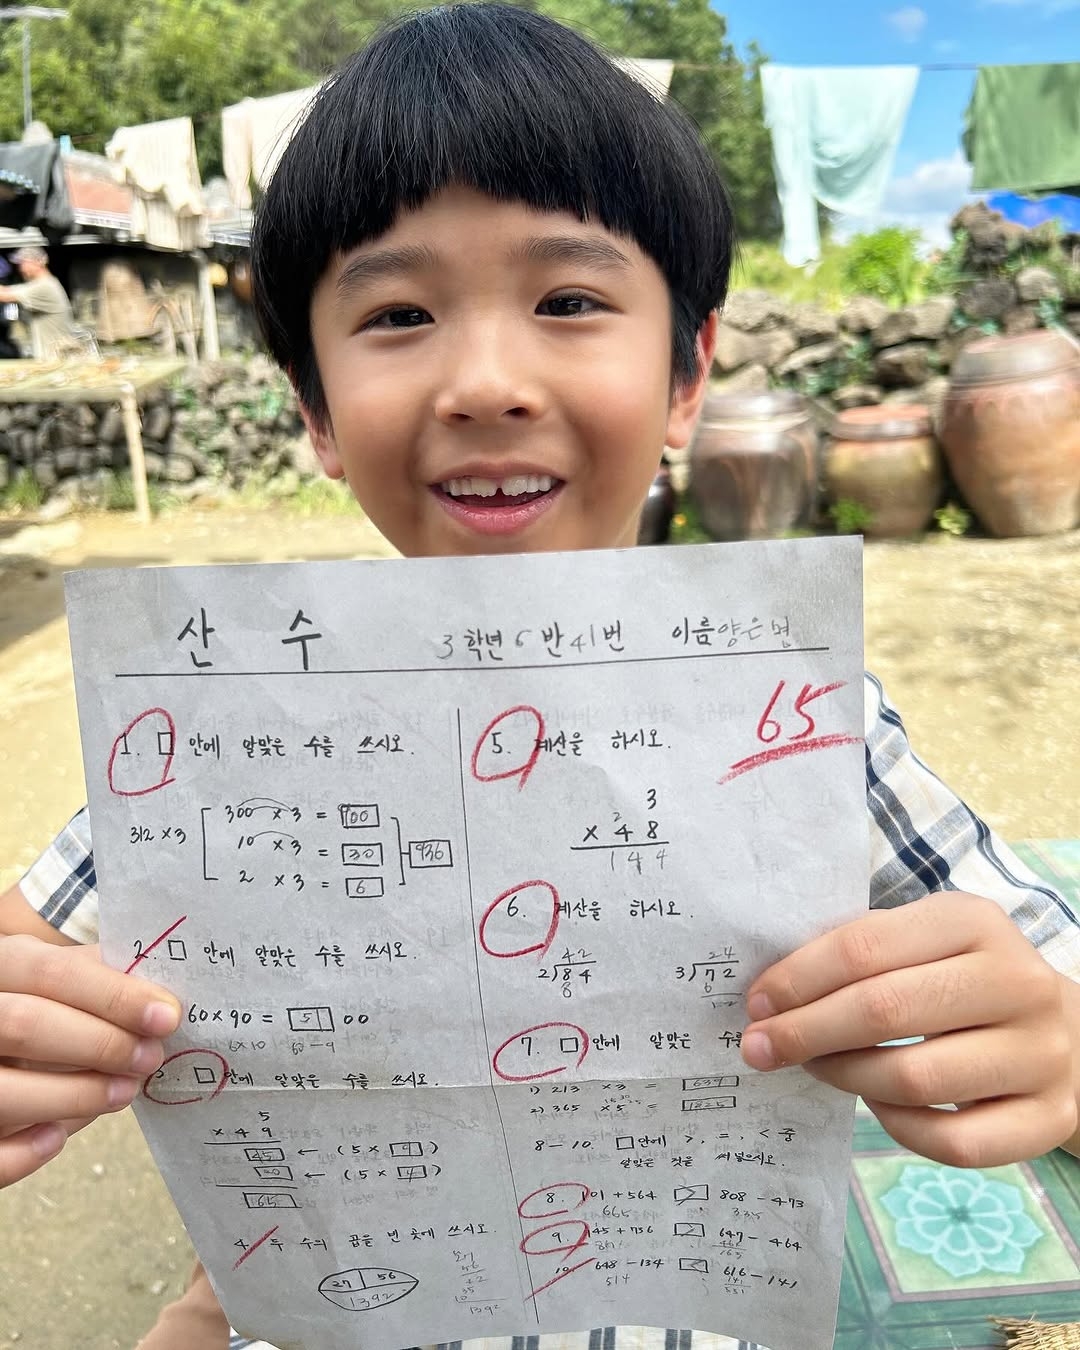 산 수 3학년 6반 41번 이름 양은명
65
1. □ 안에 알맞은 수를 쓰시오.
312 × 3
300 × 3 = 900
10 × 3 = 30
2 × 3 = 6
936
2. □ 안에 알맞은 수를 쓰시오.
60 × 90 = 51 00
6×10 60-9
3. □ 안에 알맞은 수를 쓰시오.
5
× 4 9
45 ← (5 × 9)
20 ← (5 × 4)
65
4. 두 수의 곱을 빈 곳에 쓰시오.
27 56
1392
1392
5. 계산을 하시오.
3
2
× 4 8
1 4 4
6. 계산을 하시오.
42
2)84
8
24
3)72
6
12
7. □ 안에 알맞은 수를
1) 213 × 3 = 639
2) 365 × 5 = 1825
8-10. □안에 >, =, < 중
알맞은 것을 써넣으시오.
8. 101 + 564 > 808 - 473
665 335
9. 145 + 756 > 647 - 464
10. 648 - 134 < 616 - 141
514